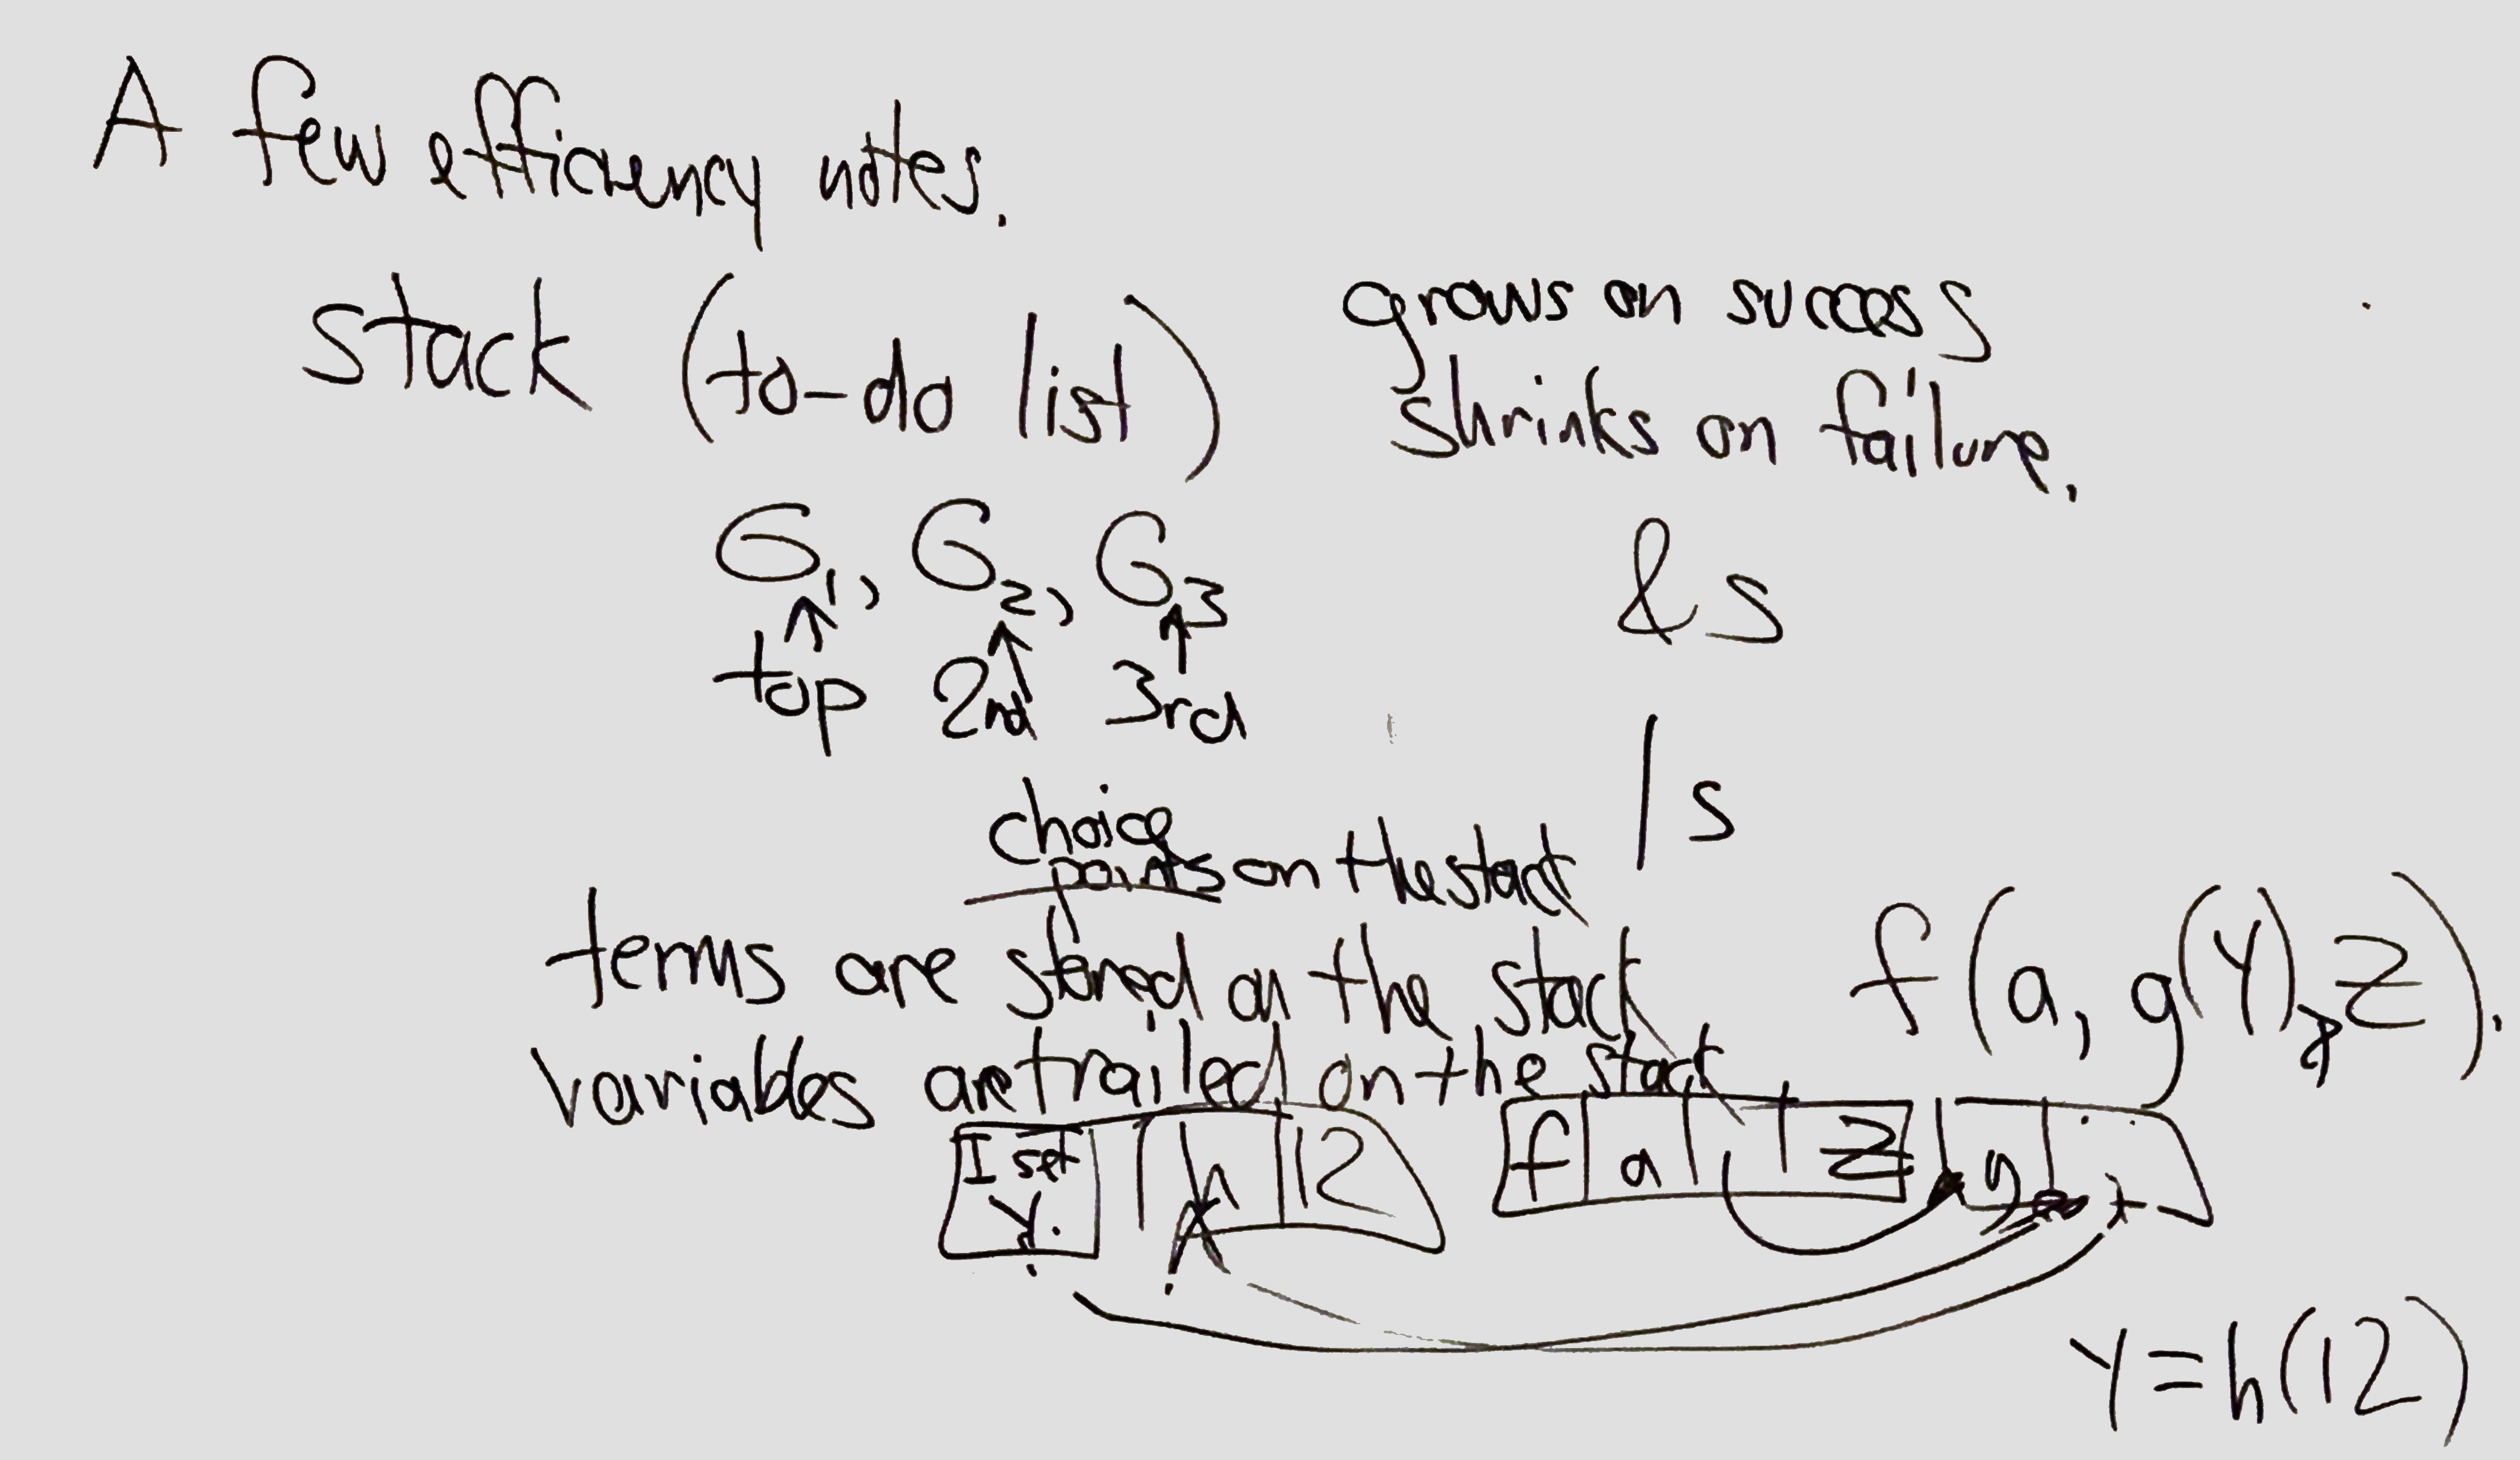 A few efficiency notes.
stack (to-do list)
grows on success
shrinks on failure.
G1, G2, G3
&s
top 2nd 3rd
|s
choice
points on the stack
terms are stored on the stack
f(a, g(Y), Z).
variables are trailed on the stack
I set h 12
Y.
f a Z g
Y=h(12)